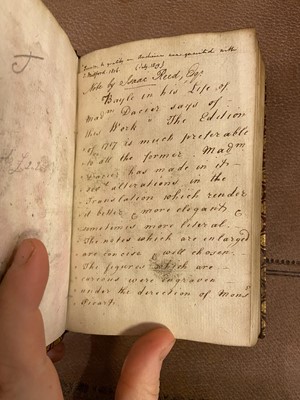 J
Note by Isaac Reed, Esqr
Bayle in his Life of
Madm Dacier says of
this Work "The Edition
of 1717 is much preferable
to all the former Madm
Dacier has made in it
alterations in the
Translation which render
it better & more elegant &
sometimes more literal.
The notes which are enlarged
are concise & well chosen
The figures which are
curious were engraved
under the direction of Monsr
Picart.